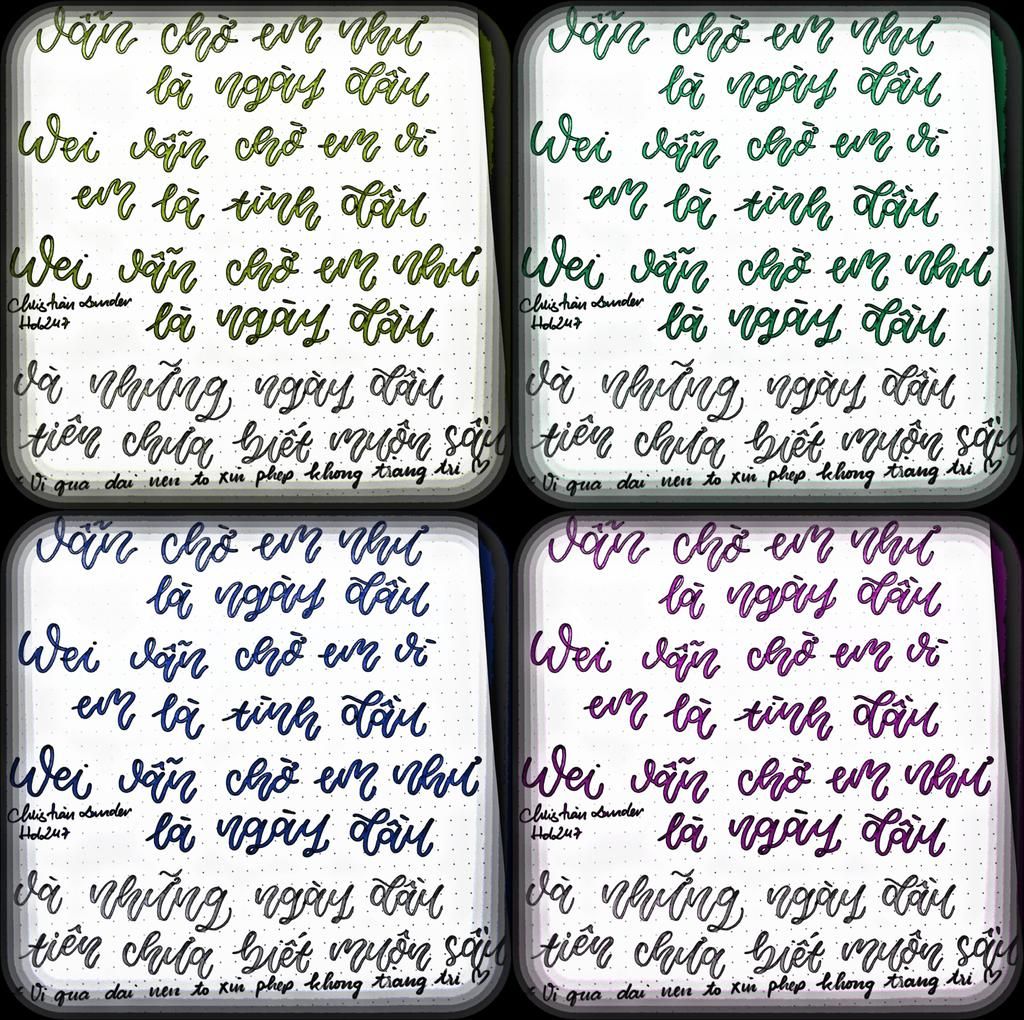 vẫn chờ em như
là ngày đầu
Wei vẫn chờ em vì
em là tình đầu
Wei vẫn chờ em như
là ngày đầu
và những ngày đầu
tiên chưa biết muộn sầu
Vi qua dai nen to xin phep khong trang tri ♡
vẫn chờ em như
là ngày đầu
Wei vẫn chờ em vì
em là tình đầu
Wei vẫn chờ em như
là ngày đầu
và những ngày đầu
tiên chưa biết muộn sầu
Vi qua dai nen to xin phep khong trang tri ♡
vẫn chờ em như
là ngày đầu
Wei vẫn chờ em vì
em là tình đầu
Wei vẫn chờ em như
là ngày đầu
và những ngày đầu
tiên chưa biết muộn sầu
Vi qua dai nen to xin phep khong trang tri ♡
vẫn chờ em như
là ngày đầu
Wei vẫn chờ em vì
em là tình đầu
Wei vẫn chờ em như
là ngày đầu
và những ngày đầu
tiên chưa biết muộn sầu
Vi qua dai nen to xin phep khong trang tri ♡